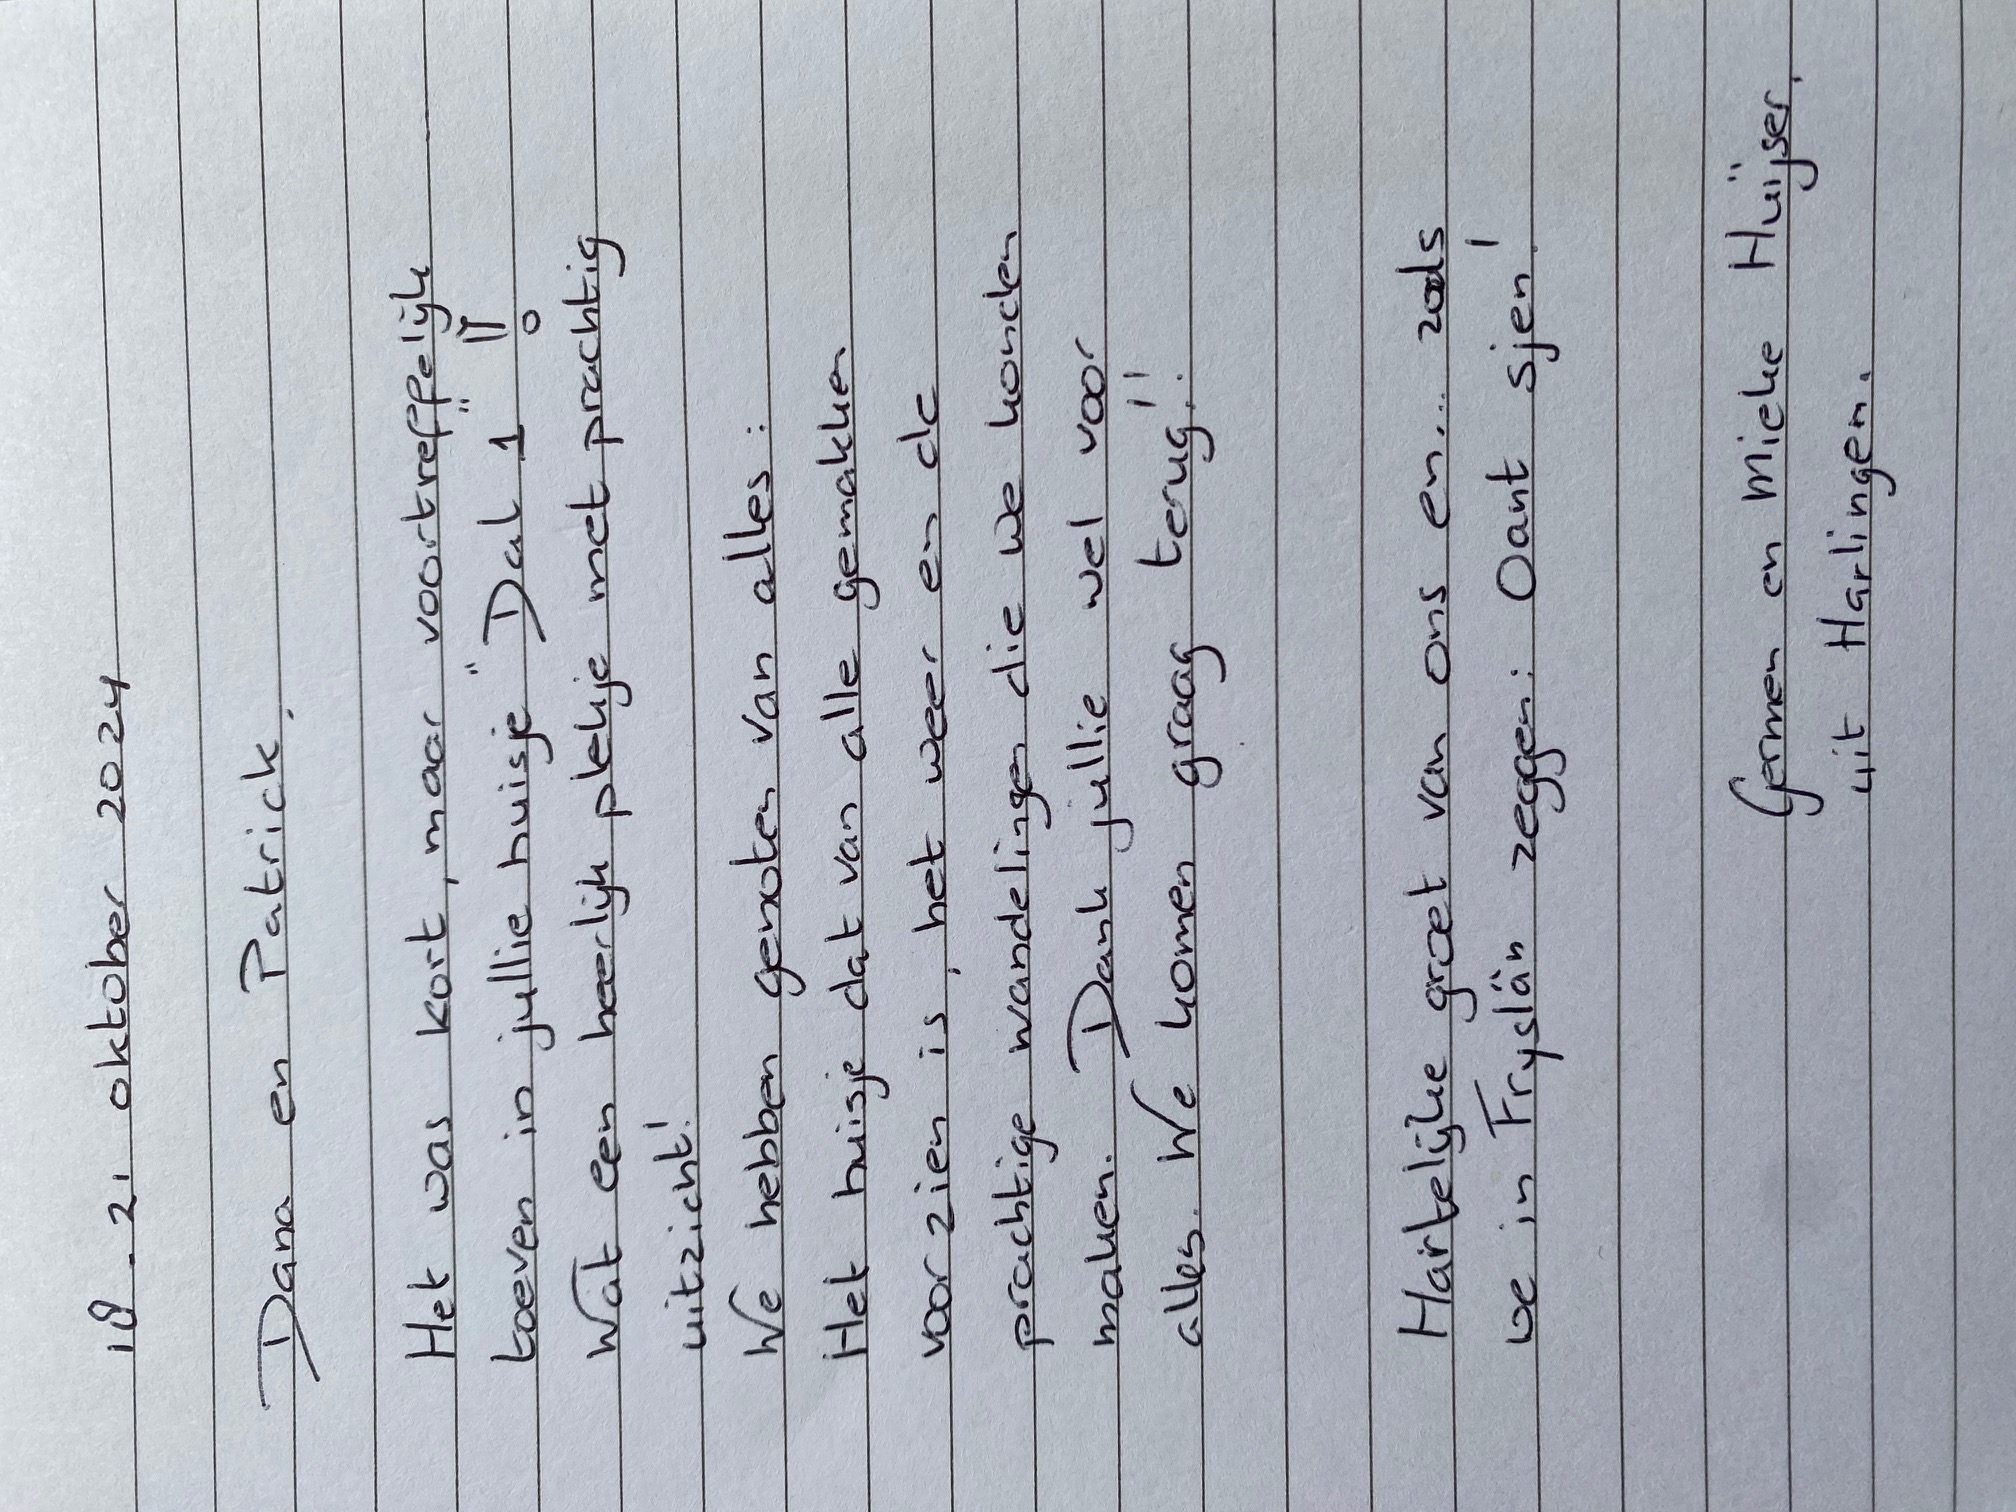 18 - 21 oktober 2024
Dana en Patrick,
Het was kort, maar voortreffelijk
toeven in jullie huisje "Dal 1"!!
Wat een heerlijk plekje met prachtig
uitzicht!
We hebben genoten van alles:
Het huisje dat van alle gemakken
voorzien is, het weer en de
prachtige wandelingen die we konden
maken. Dank jullie wel voor
alles. We komen graag terug!!
Hartelijke groet van ons en... zoals
we in Fryslân zeggen: Oant sjen!
Germen en Mieke Huijser,
uit Harlingen.